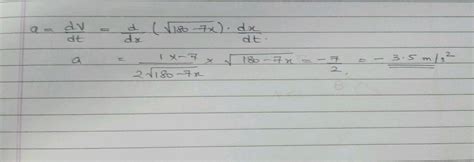 a = dV/dt = d/dx (√180-7x) · dx/dt.
a = 1x-7/2√180-7x × √180-7x = -7/2. = -3.5 m/s²